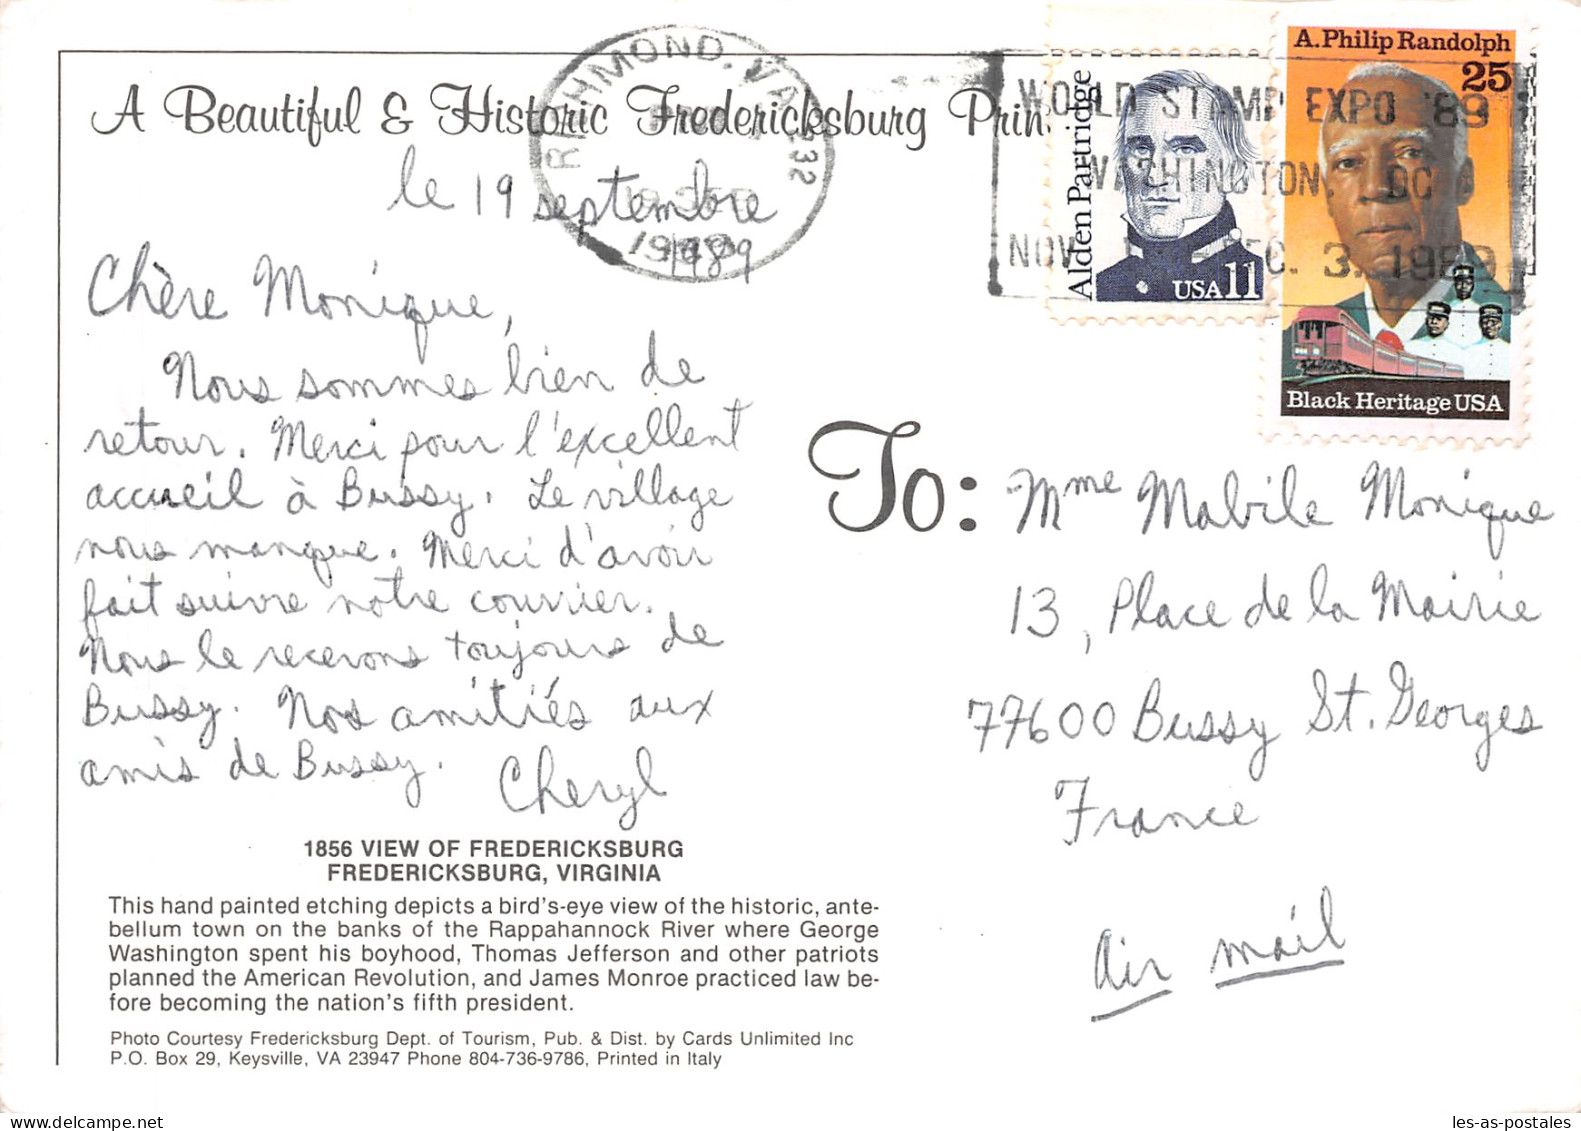 A Beautiful & Historic Fredericksburg Prin
RICHMOND, VA 232
19 SEP
1989
WORLD STAMP EXPO '89
WASHINGTON, DC
NOV. DEC. 3. 1989
Alden Partridge
USA 11
A. Philip Randolph
25
Black Heritage USA
le 19 septembre
1989
Chère Monique,
Nous sommes bien de
retour. Merci pour l'excellent
accueil à Bussy. Le village
nous manque. Merci d'avoir
fait suivre notre courrier.
Nous le recevons toujours de
Bussy. Nos amitiés aux
amis de Bussy.
Cheryl
To: Mme Mabile Monique
13, Place de la Mairie
77600 Bussy St. Georges
France
air mail
1856 VIEW OF FREDERICKSBURG
FREDERICKSBURG, VIRGINIA
This hand painted etching depicts a bird's-eye view of the historic, ante-
bellum town on the banks of the Rappahannock River where George
Washington spent his boyhood, Thomas Jefferson and other patriots
planned the American Revolution, and James Monroe practiced law be-
fore becoming the nation's fifth president.
Photo Courtesy Fredericksburg Dept. of Tourism, Pub. & Dist. by Cards Unlimited Inc
P.O. Box 29, Keysville, VA 23947 Phone 804-736-9786, Printed in Italy
les-as-postales